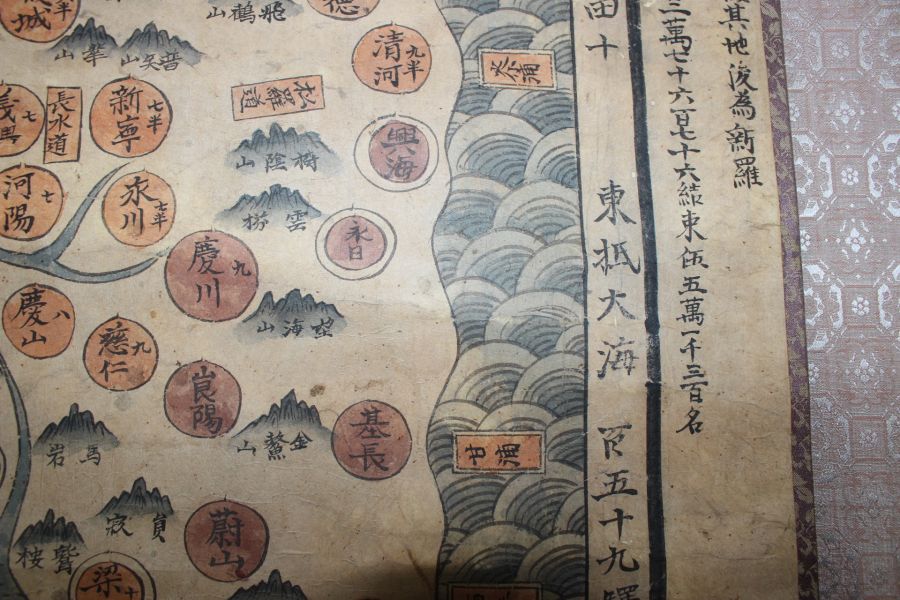 其地後為新羅
三萬七十六百七十六結東伍五萬一千三百名
田十
東抵大海
百五十九驛
清河
九半
興海
永日
松羅道
飛鶴山
樹陰山
雲梯
望海山
金鰲山
基長
甘浦
普矢山
華山
新寧
七半
永川
七半
慶川
九
慈仁
九
崑陽
蔚山
長水道
河陽
七
慶山
八
馬岩
鷲栖
梁
十
城
半
七
德